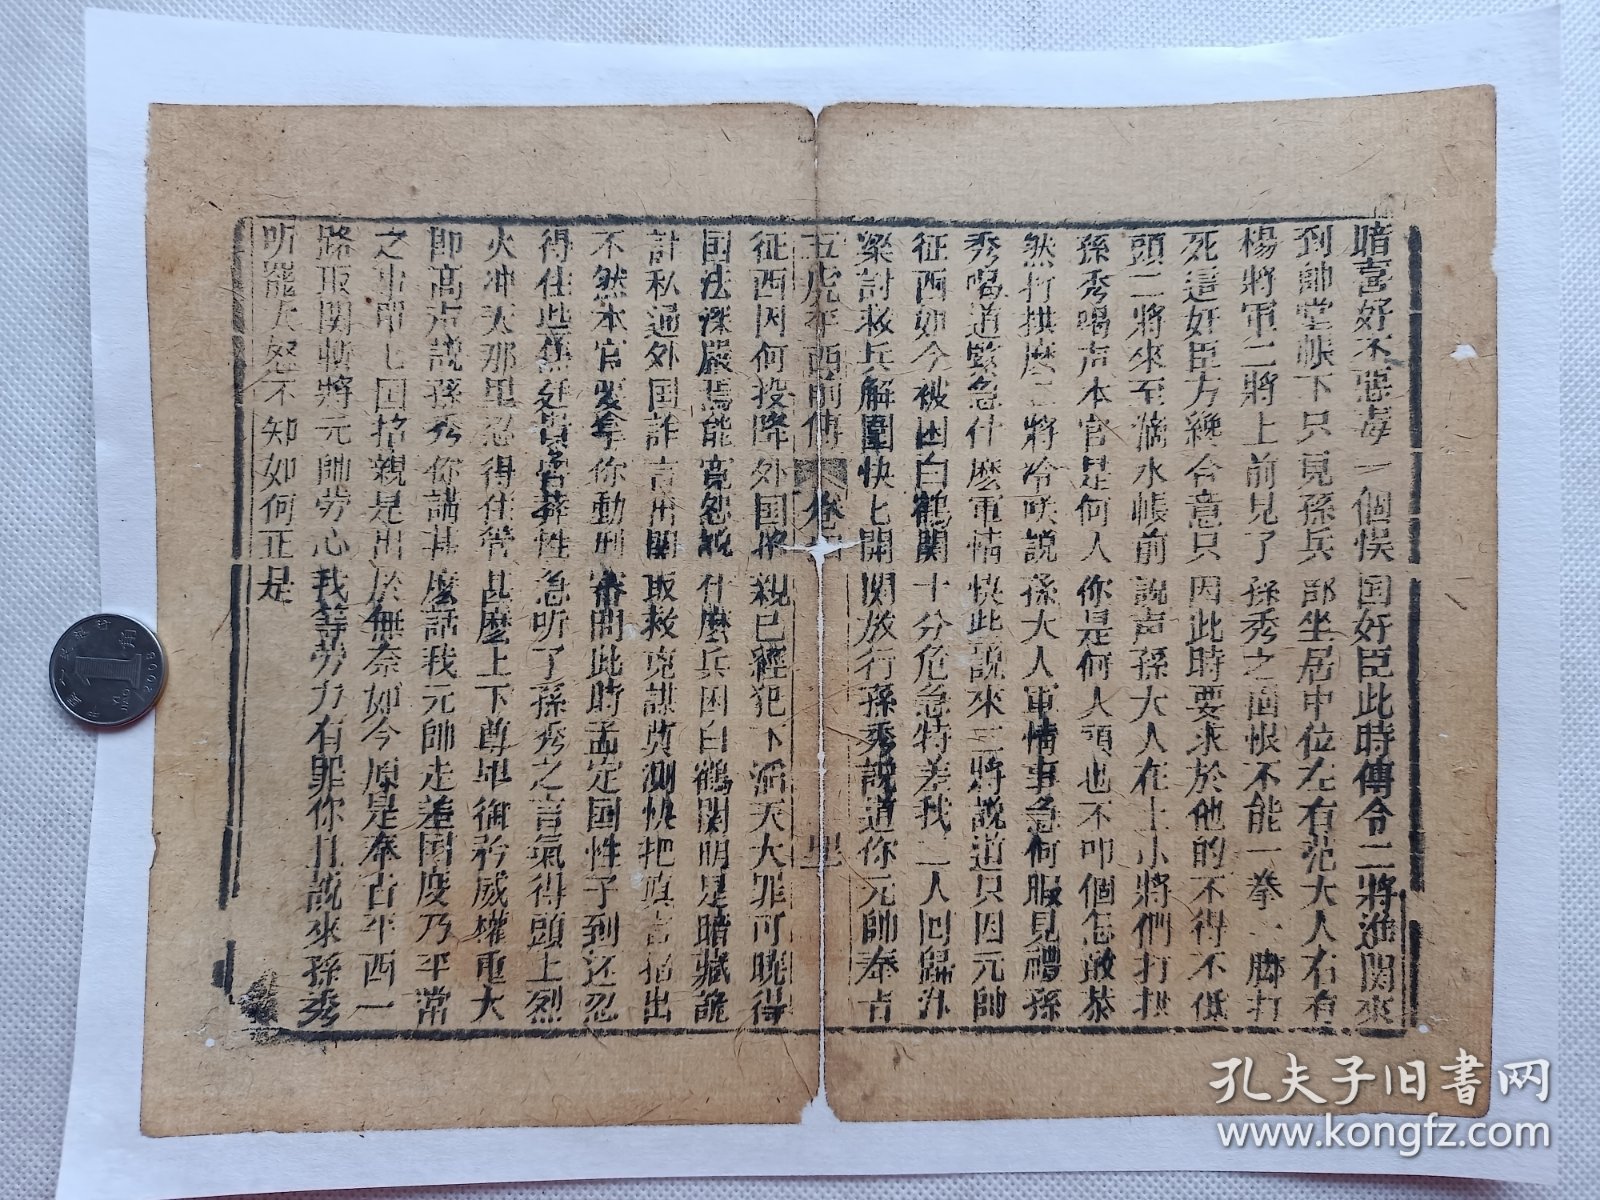 暗喜好不惡毒一個悮国奸臣此時傳令二將進関來
到帥堂帳下只見孫兵部坐居中位左右范大人右有
楊將軍二將上前見了孫秀之面恨不能一拳一脚打
死這奸臣方纔合意只因此時要求於他的不得不低
頭二將來至滴水帳前說声孫大人在上小將們打拱
孫秀喝声本官是何人你是何人頭也不叩個怎敢恭
然打拱麽二將冷咲說孫大人軍情事急何服見禮孫
秀喝道緊急什麽軍情快此說來二將說道只因元帥
征西如今被困白鶴関十分危急特差我二人回歸汴
梁討救兵解圍快匕開関放行孫秀說道你元帥奉旨
五虎平西前傳 卷
征西因何投降外国招親已經犯下滔天大罪可曉得
国法深嚴焉能寬恕說什麽兵困白鶴関明是暗藏詭
計私通外国詐言開関取救兵謀莫測快把真言招出
不然本官要拿你動刑審問此時孟定国性子到还忍
得住此焦廷貴鲁莽性急听了孫秀之言氣得頭上烈
火冲天那里忍得住管甚麽上下尊卑衙衿威權重大
即高声說孫秀你講甚麽話我元帥走差国度乃平常
之事即匕回招親是出於無奈如今原是奉旨平西一
路取関斬將元帥劳心我等劳力有罪你且說來孫秀
听罷大怒不知如何正是
孔夫子旧书网
www.kongfz.com